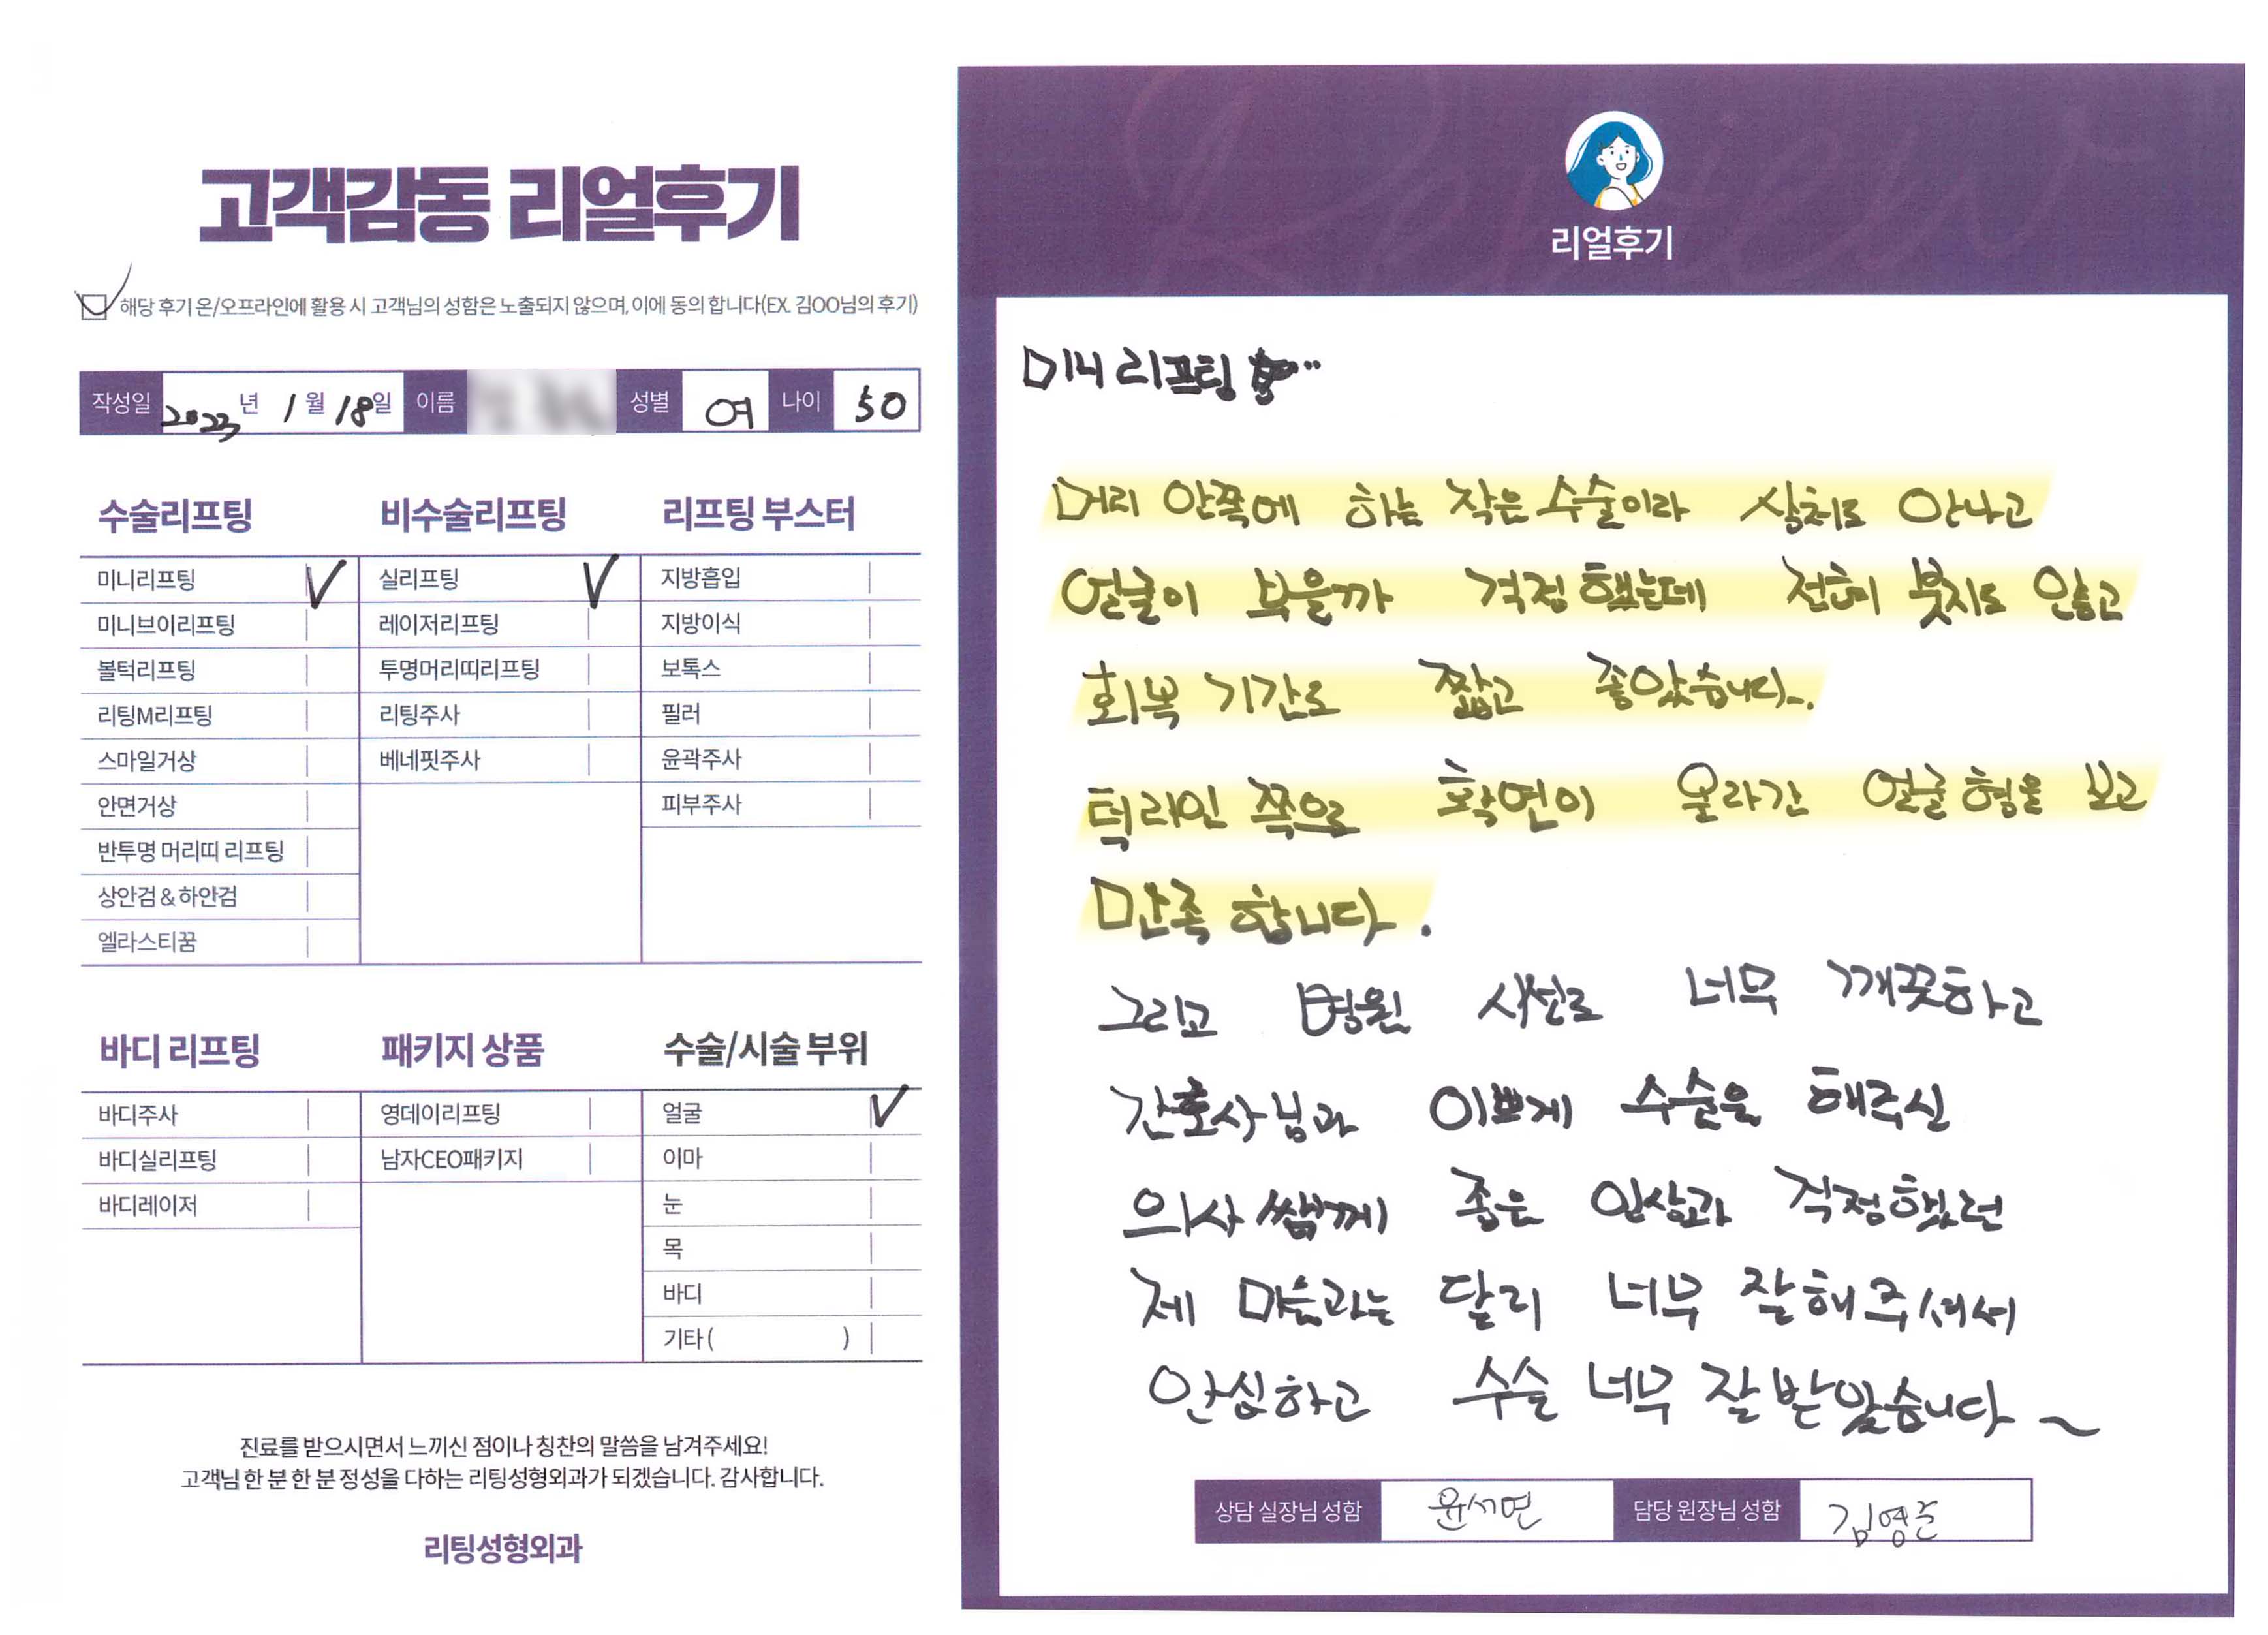 고객감동 리얼후기
해당 후기 온/오프라인에 활용 시 고객님의 성함은 노출되지 않으며, 이에 동의 합니다(EX. 김OO님의 후기)
작성일 2023년 1월 18일 이름 성별 여 나이 50
수술리프팅
미니리프팅 ✓
미니브이리프팅
볼턱리프팅
리팅M리프팅
스마일거상
안면거상
반투명 머리띠 리프팅
상안검 & 하안검
엘라스티꿈
비수술리프팅
실리프팅 ✓
레이저리프팅
투명머리띠리프팅
리팅주사
베네핏주사
리프팅 부스터
지방흡입
지방이식
보톡스
필러
윤곽주사
피부주사
바디 리프팅
바디주사
바디실리프팅
바디레이저
패키지 상품
영데이리프팅
남자CEO패키지
수술/시술 부위
얼굴 ✓
이마
눈
목
바디
기타 ( )
진료를 받으시면서 느끼신 점이나 칭찬의 말씀을 남겨주세요!
고객님 한 분 한 분 정성을 다하는 리팅성형외과가 되겠습니다. 감사합니다.
리팅성형외과
Review
리얼후기
미니 리프팅
머리 안쪽에 하는 작은 수술이라 상처도 안나고
얼굴이 부을까 걱정했는데 전혀 붓지도 않고
회복 기간도 짧고 좋았습니다.
턱라인 쪽으로 확연이 올라간 얼굴형을 보고
만족 합니다.
그리고 병원 시설도 너무 깨끗하고
간호사님과 이쁘게 수술을 해주신
의사쌤께 좋은 인상과 걱정했던
제 마음과는 달리 너무 잘해주셔서
안심하고 수술 너무 잘 받았습니다~
상담 실장님 성함 윤서연 담당 원장님 성함 김영준